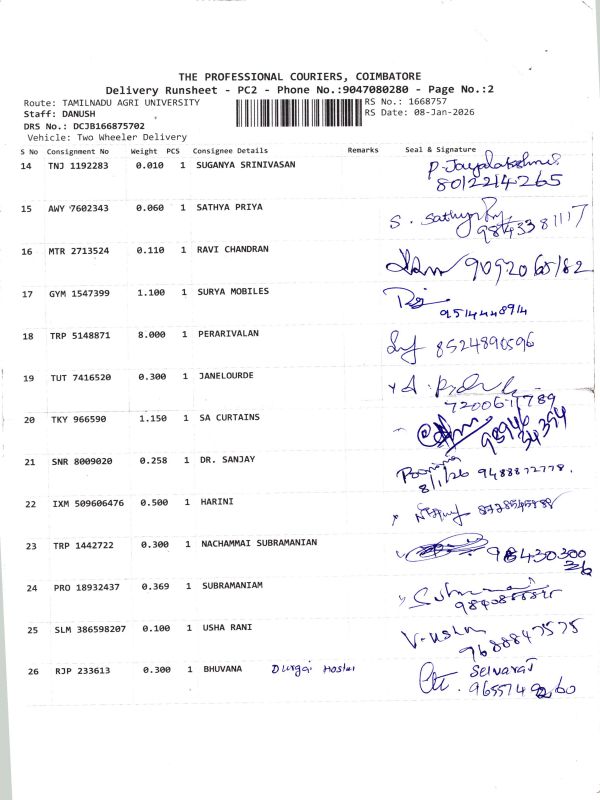 THE PROFESSIONAL COURIERS, COIMBATORE
Delivery Runsheet - PC2 - Phone No.:9047080280 - Page No.:2
Route: TAMILNADU AGRI UNIVERSITY RS No.: 1668757
Staff: DANUSH RS Date: 08-Jan-2026
DRS No.: DCJB166875702
Vehicle: Two Wheeler Delivery
S No Consignment No Weight PCS Consignee Details Remarks Seal & Signature
14 TNJ 1192283 0.010 1 SUGANYA SRINIVASAN P. Jayalakshmi
8012214265
15 AWY 7602343 0.060 1 SATHYA PRIYA S. Sathya
9843381117
16 MTR 2713524 0.110 1 RAVI CHANDRAN 9092065182
17 GYM 1547399 1.100 1 SURYA MOBILES
9514448914
18 TRP 5148871 8.000 1 PERARIVALAN 8524890596
19 TUT 7416520 0.300 1 JANELOURDE
20 TKY 966590 1.150 1 SA CURTAINS
21 SNR 8009020 0.258 1 DR. SANJAY Poornima
8/1/26 9488872778.
22 IXM 509606476 0.500 1 HARINI
23 TRP 1442722 0.300 1 NACHAMMAI SUBRAMANIAN
24 PRO 18932437 0.369 1 SUBRAMANIAM
25 SLM 386598207 0.100 1 USHA RANI V. Usha
9688847575
26 RJP 233613 0.300 1 BHUVANA Durga Hostel Selvaraj